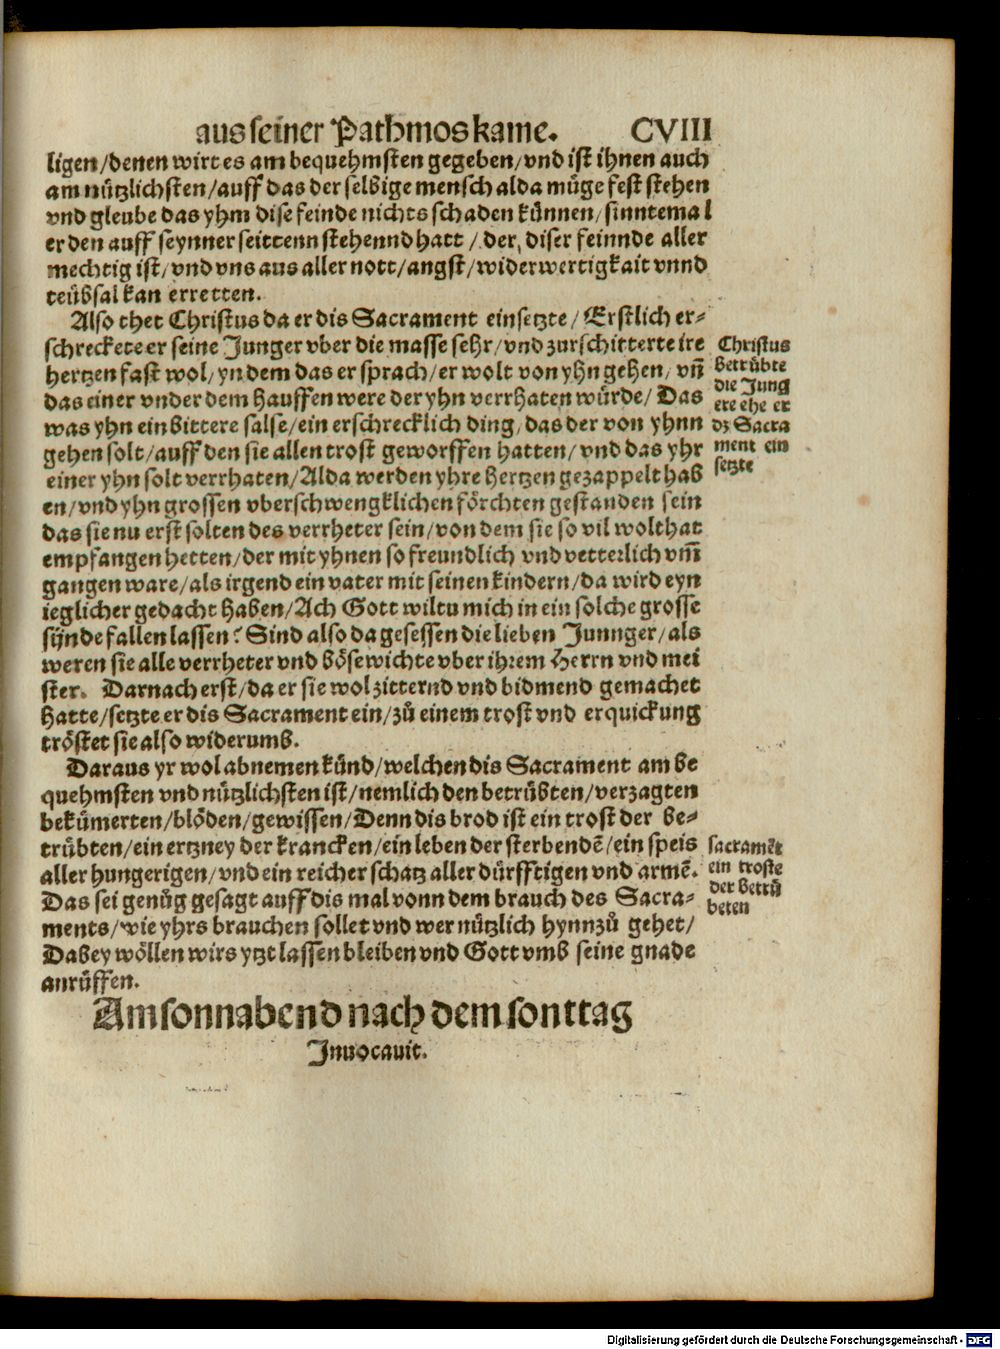 aus seiner Pathmos kame. CVIII
ligen/denen wirt es am bequehmsten gegeben/vnd ist ihnen auch
am nützlichsten/auff das der selbige mensch alda müge fest stehen
vnd gleube das yhm dise feinde nichts schaden künnen/sinntemal
er den auff seynner seittenn stehennd hatt/der, diser feinnde aller
mechtig ist/vnd vns aus aller nott/angst/widerwertigkait vnnd
teübsal kan erretten.
Also thet Christus da er dis Sacrament einsetzte/Erstlich er⸗
schreckete er seine Junger vber die masse sehr/vnd zurschitterte ire
hertzen fast wol/yn dem das er sprach/er wolt von yhn gehen/vn̄
das einer vnder dem hauffen were der yhn verrhaten würde/Das
was yhn ein bittere salse/ein erschrecklich ding/das der von yhnn
gehen solt/auff den sie allen trost geworffen hatten/vnd das yhr
einer yhn solt verrhaten/Alda werden yhre hertzen gezappelt hab
en/vnd yhn grossen vberschwengklichen förchten gestanden sein
das sie nu erst solten des verrheter sein/von dem sie so vil wolthat
empfangen hetten/der mit yhnen so freundlich vnd vetterlich vm̄
gangen ware/als irgend ein vater mit seinen kindern/da wird eyn
ieglicher gedacht haben/Ach Gott wiltu mich in ein solche grosse
sünde fallen lassen? Sind also da gesessen die lieben Junnger/als
weren sie alle verrheter vnd bösewichte vber ihrem Herrn vnd mei
ster. Darnach erst/da er sie wol zitternd vnd bidmend gemachet
hatte/setzte er dis Sacrament ein/zů einem trost vnd erquickung
tröstet sie also widerumb.
Daraus yr wol abnemen künd/welchen dis Sacrament am be
quehmsten vnd nützlichsten ist/nemlich den betrübten/verzagten
bekümerten/blöden/gewissen/Denn dis brod ist ein trost der be⸗
trübten/ein ertzney der krancken/ein leben der sterbendē/ein speis
aller hungerigen/vnd ein reicher schatz aller dürfftigen vnd armē.
Das sei genůg gesagt auff dis mal vonn dem brauch des Sacra⸗
ments/wie yhrs brauchen sollet vnd wer nützlich hynnzů gehet/
Dabey wöllen wirs ytzt lassen bleiben vnd Gott vmb seine gnade
anrüffen.
Am sonnabend nach dem sonttag
Inuocauit.
Christus
betrübte
die Jung
ere ehe er
dz Sacra
ment ein
setzte
sacramēt
ein troste
der betrü
beten
Digitalisierung gefördert durch die Deutsche Forschungsgemeinschaft - DFG